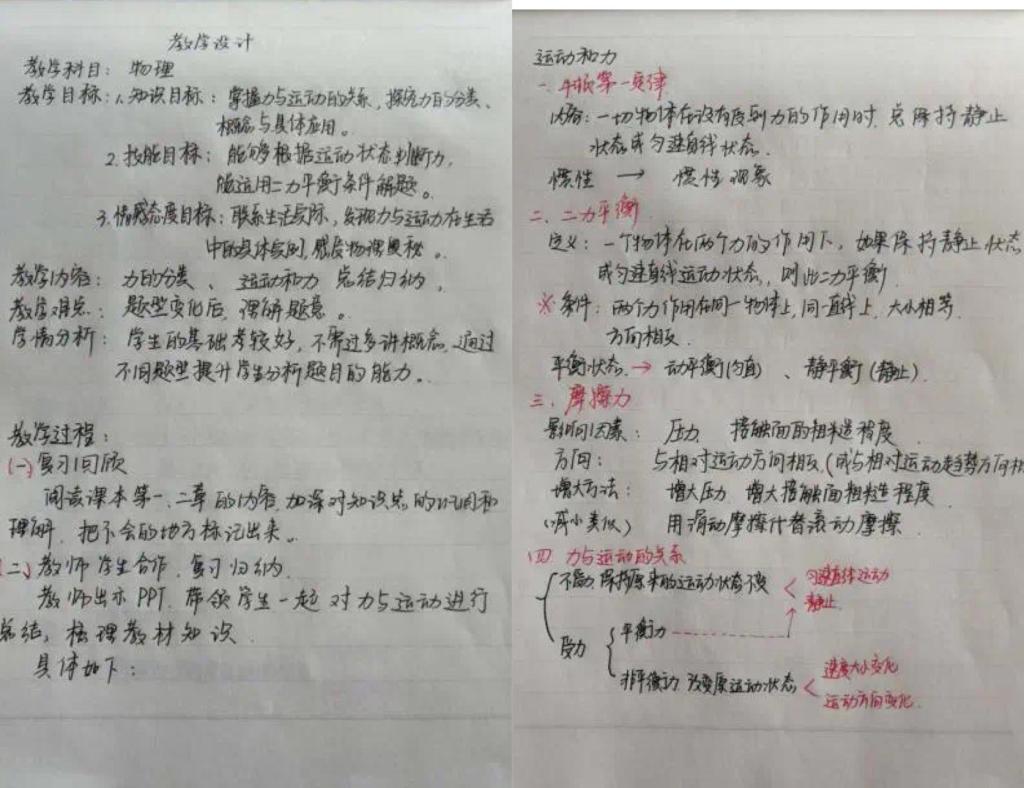 教学设计
教学科目：物理
教学目标：1.知识目标：掌握力与运动的关系，探究力的分类、
概念与具体应用。
2.技能目标：能够根据运动状态判断力，
能运用二力平衡条件解题。
3.情感态度目标：联系生活实际，发现力与运动在生活
中的具体实例，感受物理奥秘。
教学内容：力的分类、运动和力 总结归纳，
教学难点：题型变化后，理解题意。
学情分析：学生的基础考较好，不需过多讲概念，通过
不同题型提升学生分析题目的能力。
教学过程：
(一)复习回顾
阅读课本第一、二章的内容，加深对知识点的认识和
理解，把不会的地方标记出来。
(二)教师学生合作，复习归纳
教师出示PPT，带领学生一起对力与运动进行
总结，梳理教材知识
具体如下：
运动和力
一、牛顿第一定律
内容：一切物体在没有受到力的作用时，总保持静止
状态或匀速直线状态．
惯性 → 惯性现象
二、二力平衡
定义：一个物体在两个力的作用下，如果保持静止状态
或匀速直线运动状态，则此二力平衡．
※条件：两个力作用在同一物体上，同一直线上，大小相等．
方向相反．
平衡状态 → 动平衡(匀直)、静平衡(静止)．
三、摩擦力
影响因素：压力 接触面的粗糙程度
方向：与相对运动方向相反(或与相对运动趋势方向相
增大方法：增大压力 增大接触面粗糙程度
(减小类似) 用滑动摩擦代替滚动摩擦
四 力与运动的关系
不受力，保持原来的运动状态不变
匀速直线运动
静止
受力
平衡力
非平衡力 改变原运动状态
速度大小变化
运动方向变化